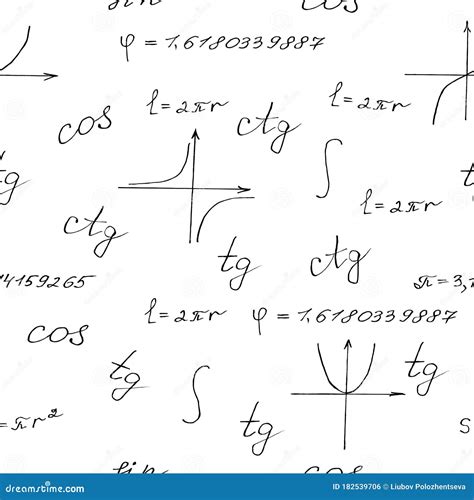 sin
cos
φ = 1,6180339887
l = 2πr
l = 2πr
cos
ctg
tg
t
l = 2πr
ctg
tg
ctg
4159265
π = 3,
l = 2πr
φ = 1,6180339887
cos
tg
tg
= πr²
tg
s
sin
cos
dreamstime.com
ID 182539706 © Liubov Polozhentseva